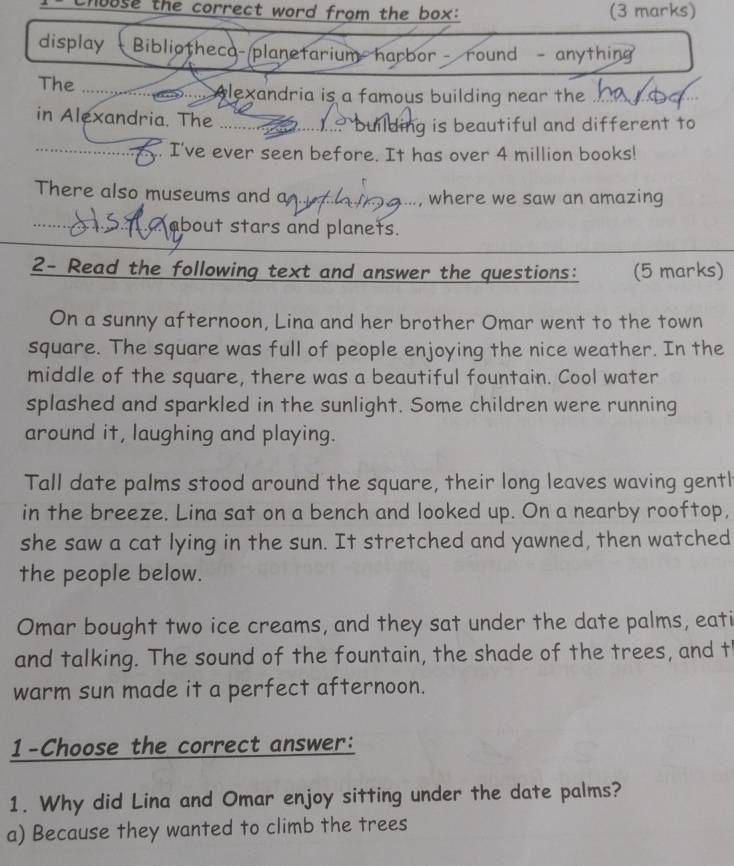 Choose the correct word from the box: (3 marks)
display - Bibliotheca - planetarium - harbor - round - anything
The .......... Alexandria is a famous building near the ..........
in Alexandria. The .......... building is beautiful and different to
.......... I've ever seen before. It has over 4 million books!
There also museums and a anything ...., where we saw an amazing
.......... about stars and planets.
2- Read the following text and answer the questions: (5 marks)
On a sunny afternoon, Lina and her brother Omar went to the town
square. The square was full of people enjoying the nice weather. In the
middle of the square, there was a beautiful fountain. Cool water
splashed and sparkled in the sunlight. Some children were running
around it, laughing and playing.
Tall date palms stood around the square, their long leaves waving gentl
in the breeze. Lina sat on a bench and looked up. On a nearby rooftop,
she saw a cat lying in the sun. It stretched and yawned, then watched
the people below.
Omar bought two ice creams, and they sat under the date palms, eati
and talking. The sound of the fountain, the shade of the trees, and t
warm sun made it a perfect afternoon.
1-Choose the correct answer:
1. Why did Lina and Omar enjoy sitting under the date palms?
a) Because they wanted to climb the trees